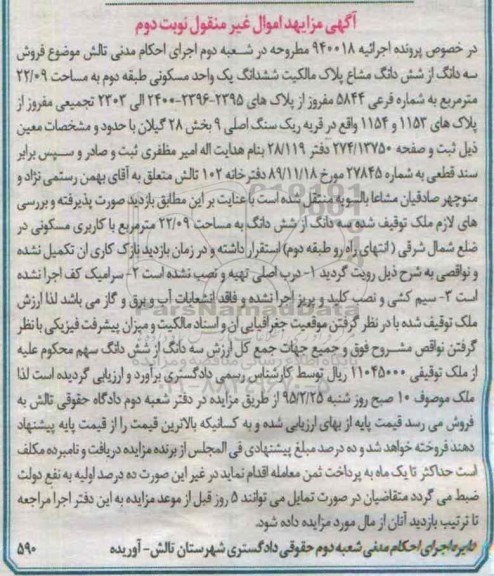 آگهی مزایهد اموال غیر منقول نوبت دوم
در خصوص پرونده اجرائیه ۹۴۰۰۱۸ مطروحه در شعبه دوم اجرای احکام مدنی تالش موضوع فروش
سه دانگ از شش دانگ مشاع پلاک مالکیت ششدانگ یک واحد مسکونی طبقه دوم به مساحت ۲۲/۰۹
مترمربع به شماره فرعی ۵۸۴۴ مفروز از پلاک های ۲۳۹۵-۲۳۹۶-۲۴۰۰ الی ۲۳۰۳ تجمیعی مفروز از
پلاک های ۱۱۵۳ و ۱۱۵۴ واقع در قریه ریک سنگ اصلی ۹ بخش ۲۸ گیلان با حدود و مشخصات معین
ذیل ثبت و صفحه ۲۷۴/۱۳۷۵۰ دفتر ۲۸/۱۱۹ بنام هدایت اله امیر مظفری ثبت و صادر و سپس برابر
سند قطعی به شماره ۲۷۸۴۵ مورخ ۸۹/۱۱/۱۸ دفترخانه ۱۰۲ تالش متعلق به آقای بهمن رستمی نژاد و
منوچهر صادقیان مشاعا بالسویه منتقل شده است با عنایت بر این مطابق بازدید صورت پذیرفته و بررسی
های لازم ملک توقیف شده سه دانگ از شش دانگ به مساحت ۲۲/۰۹ مترمربع با کاربری مسکونی در
ضلع شمال شرقی (انتهای راه رو طبقه دوم) استقرار داشته و در زمان بازدید نازک کاری ان تکمیل نشده
و نواقصی به شرح ذیل رویت گردید ۱- درب اصلی تهیه و نصب نشده است ۲- سرامیک کف اجرا نشده
است ۳- سیم کشی و نصب کلید و پریز اجرا نشده و فاقد انشعابات آب و برق و گاز می باشد لذا ارزش
ملک توقیف شده با در نظر گرفتن موقعیت جغرافیایی ان و اسناد مالکیت و میزان پیشرفت فیزیکی با نظر
گرفتن نواقص مشروح فوق و جمیع جهات جمع کل ارزش سه دانگ از شش دانگ سهم محکوم علیه
از ملک توقیفی ۱۱۰۴۵۰۰۰ ریال توسط کارشناس رسمی دادگستری برآورد و ارزیابی گردیده است لذا
ملک موصوف ۱۰ صبح روز شنبه ۹۵/۲/۲۵ از طریق مزایده در دفتر شعبه دوم دادگاه حقوقی تالش به
فروش می رسد قیمت پایه از بهای ارزیابی شده و به کسانیکه بالاترین قیمت را از قیمت پایه پیشنهاد
دهند فروخته خواهد شد و ده درصد مبلغ پیشنهادی فی المجلس از برنده مزایده دریافت و نامبرده مکلف
است حداکثر تا یک ماه به پرداخت ثمن معامله اقدام نماید در غیر این صورت ده درصد اولیه به نفع دولت
ضبط می گردد متقاضیان در صورت تمایل می توانند ۵ روز قبل از موعد مزایده به این دفتر اجرا مراجعه
تا ترتیب بازدید آنان از مال مورد مزایده داده شود.
دفتر اجرای احکام مدنی شعبه دوم حقوقی دادگستری شهرستان تالش- آوریده
۵۹۰
ParsNamadData